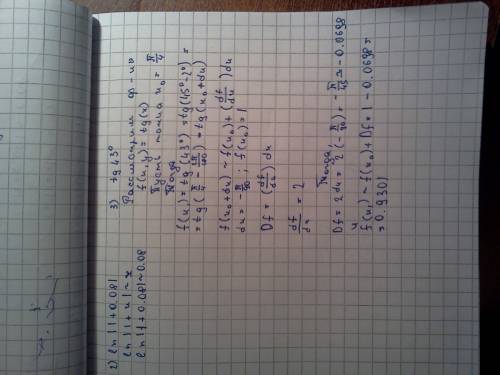 2) ln |1+0.08|
ln |1+x| ~ x
ln |1+0.08| ~ 0.08
3) tg 43°
Рассмотрим ф-ию
f(x,y) = tg(x)
Пусть точка u₀ = π/4
Тогда
f(u₁) = tg(43°) = tg(45°-2°) =
= tg(π/4 - 2π/180) = tg(u₀+du)
f(u₀+du) ~ f(u₀) + (df/du)du
du = -π/90 ; f(u₀) = 1
Df = (df/du) du
df/du = 2
Тогда
Df = 2du = 2(-π/90) = -π/45 ≈ -0.0698
и
f(u₁) ~ f(u₀) + Df = 1 - 0.0698 =
= 0.9301